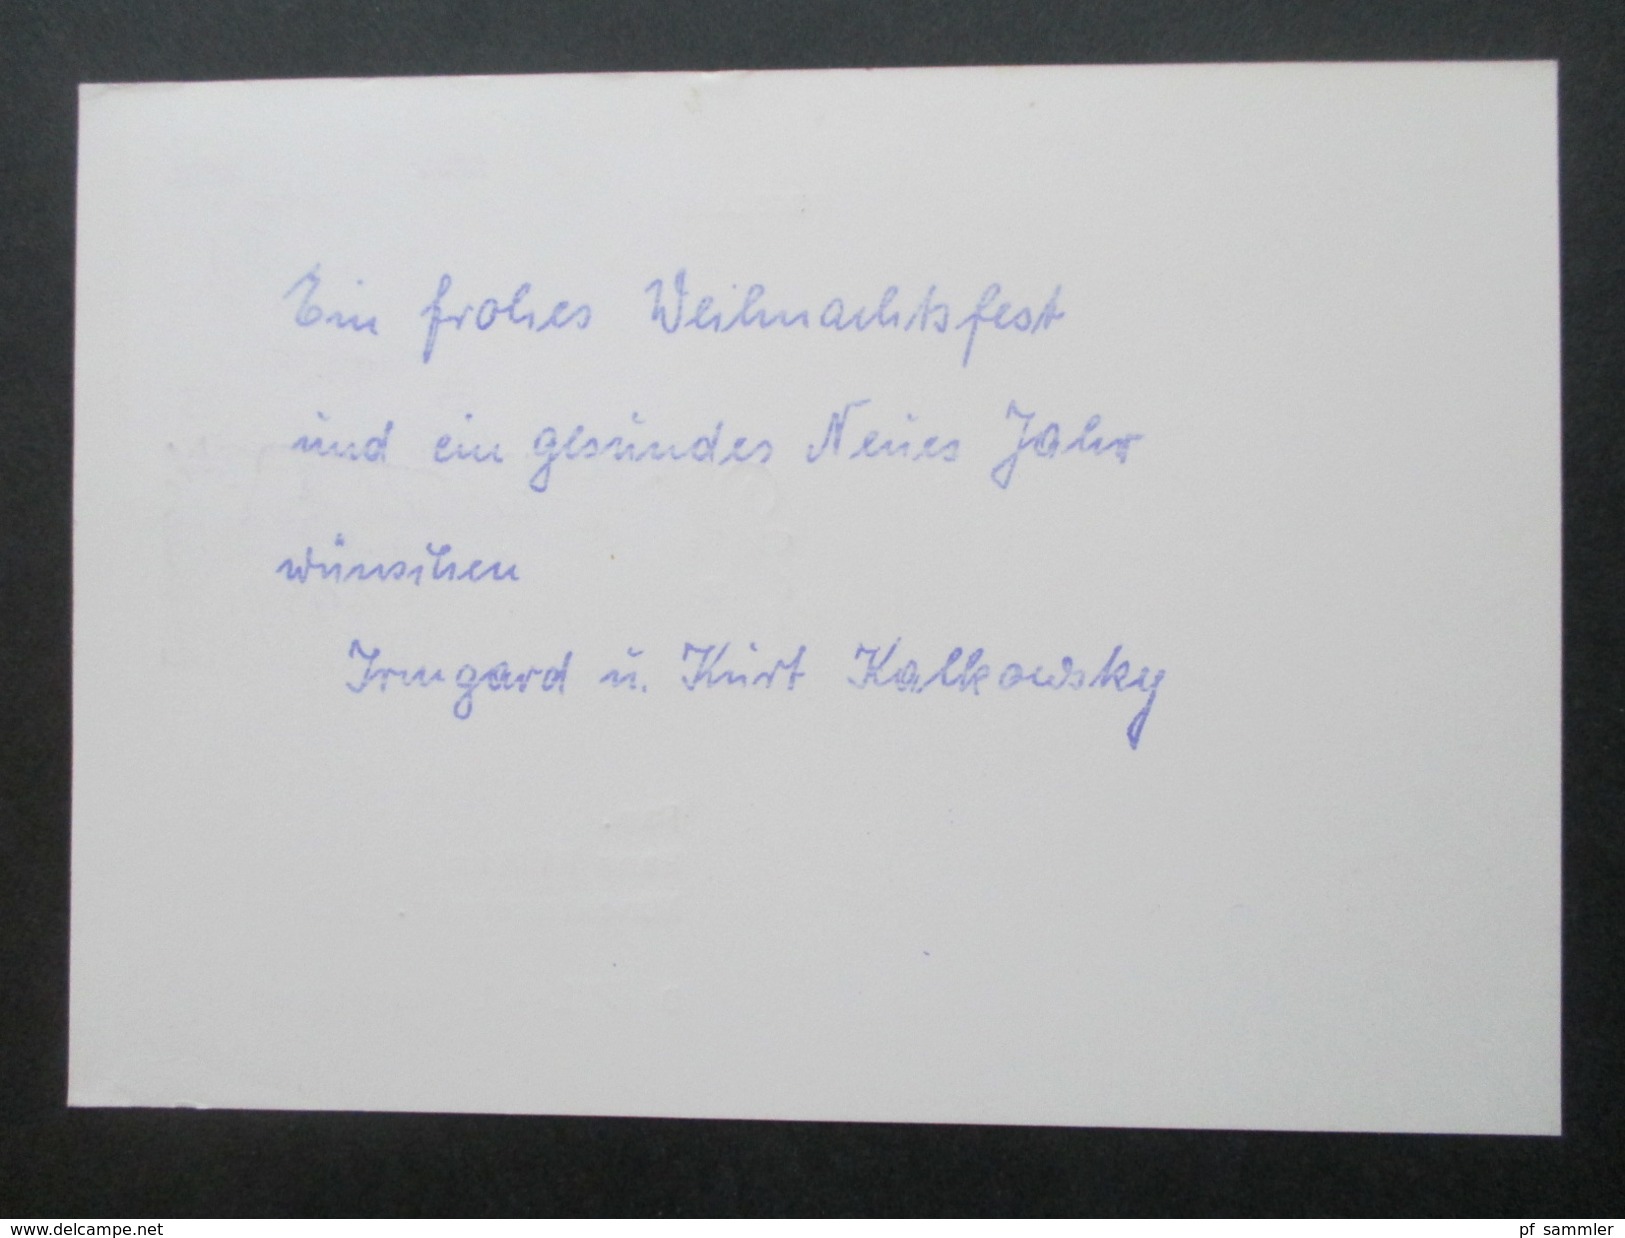 Ein frohes Weihnachtsfest
und ein gesundes Neues Jahr
wünschen
Irmgard u. Kurt Kalkowsky
www.delcampe.net
pf_sammler